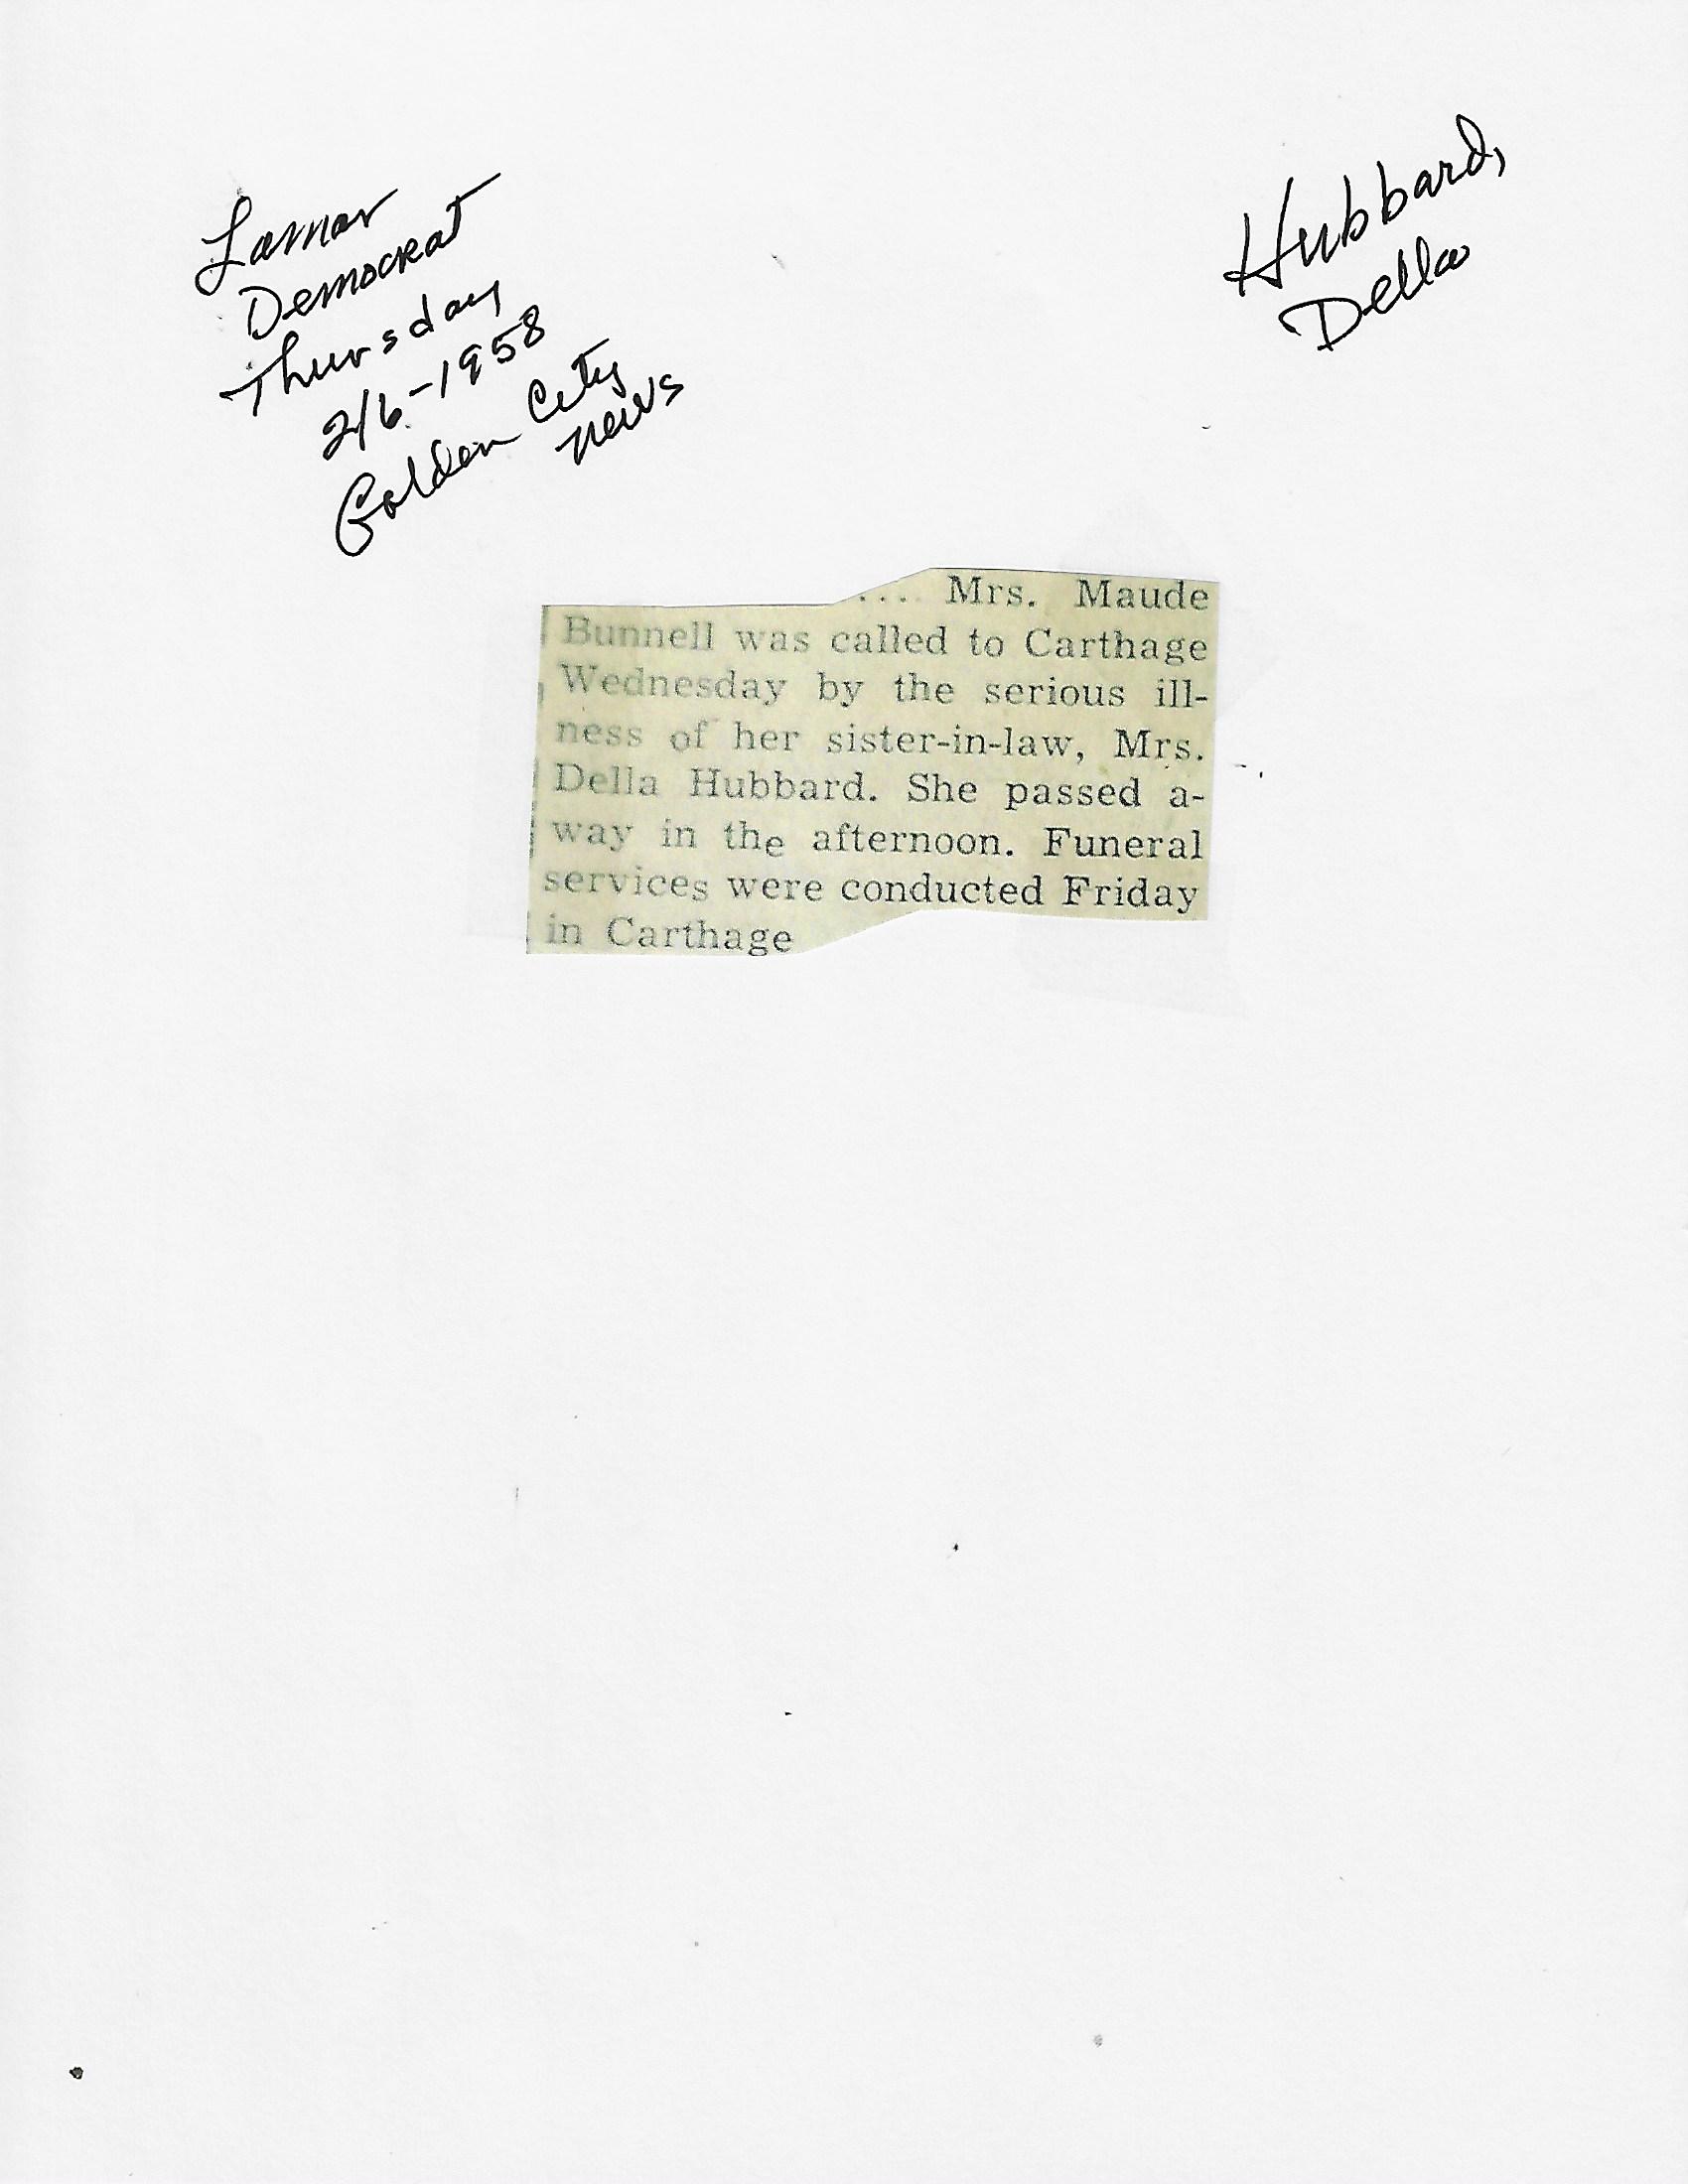 Lamar
Democrat
Thursday
2/6-1958
Golden City
news
Hubbard,
Della
.... Mrs. Maude
Bunnell was called to Carthage
Wednesday by the serious ill-
ness of her sister-in-law, Mrs.
Della Hubbard. She passed a-
way in the afternoon. Funeral
services were conducted Friday
in Carthage